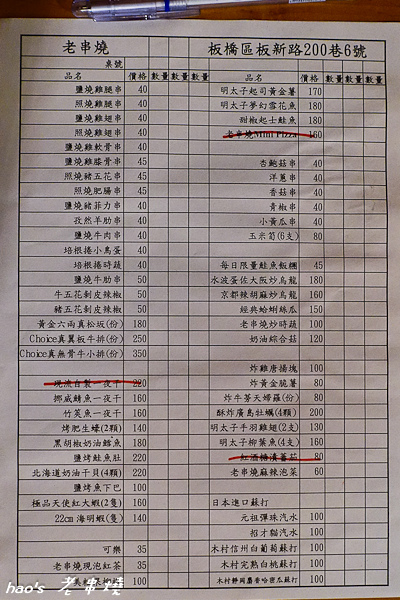 老串燒
桌號
品名 價格 數量 數量 數量
鹽燒雞腿串 40
照燒雞腿串 40
鹽燒雞翅串 40
照燒雞翅串 40
鹽燒雞軟骨串 40
鹽燒雞膝骨串 45
照燒豬五花串 45
照燒肥腸串 45
鹽燒豬菲力串 40
孜然羊肋串 40
鹽燒牛肉串 40
培根捲小鳥蛋 40
培根捲時蔬 40
鹽燒牛肋串 50
牛五花剝皮辣椒 50
豬五花剝皮辣椒 50
黃金六兩真松坂(份) 180
Choice真翼板牛排(份) 250
Choice真無骨牛小排(份) 350
現流自製一夜干 220
挪威鯖魚一夜干 160
竹筴魚一夜干 160
烤肥生蠔(2顆) 140
黑胡椒奶油鱈魚 180
鹽烤鮭魚肚 220
北海道奶油干貝(4顆) 220
鹽烤魚下巴 100
極品天使紅大蝦(2隻) 160
22cm 海明蝦(隻) 140
可樂 35
老串燒現泡紅茶 35
100
板橋區板新路200巷6號
品名 價格 數量 數量 數量
明太子起司黃金薯 170
明太子夢幻雪花魚 180
甜椒起士鮭魚 180
老串燒Mini Pizza 160
杏鮑菇串 40
洋蔥串 40
香菇串 40
青椒串 40
小黃瓜串 40
玉米筍(6支) 80
每日限量鮭魚飯糰 45
水波蛋佐大阪炒烏龍 180
京都辣胡麻炒烏龍 160
經典蛤蜊絲瓜 150
老串燒炒時蔬 100
奶油綜合菇 120
炸雞唐揚塊 100
炸黃金脆薯 80
炸牛蒡天婦羅(份) 80
酥炸廣島牡蠣(4顆) 200
明太子手羽雞翅(2支) 130
明太子柳葉魚(4支) 160
紅酒糖漬蕃茄 80
老串燒麻辣泡菜 60
日本進口蘇打
元祖彈珠汽水 100
招才貓汽水 100
木村信州白葡萄蘇打 100
木村完熟白桃蘇打 100
木村靜岡麝香哈密瓜蘇打 100
hao's 老串燒